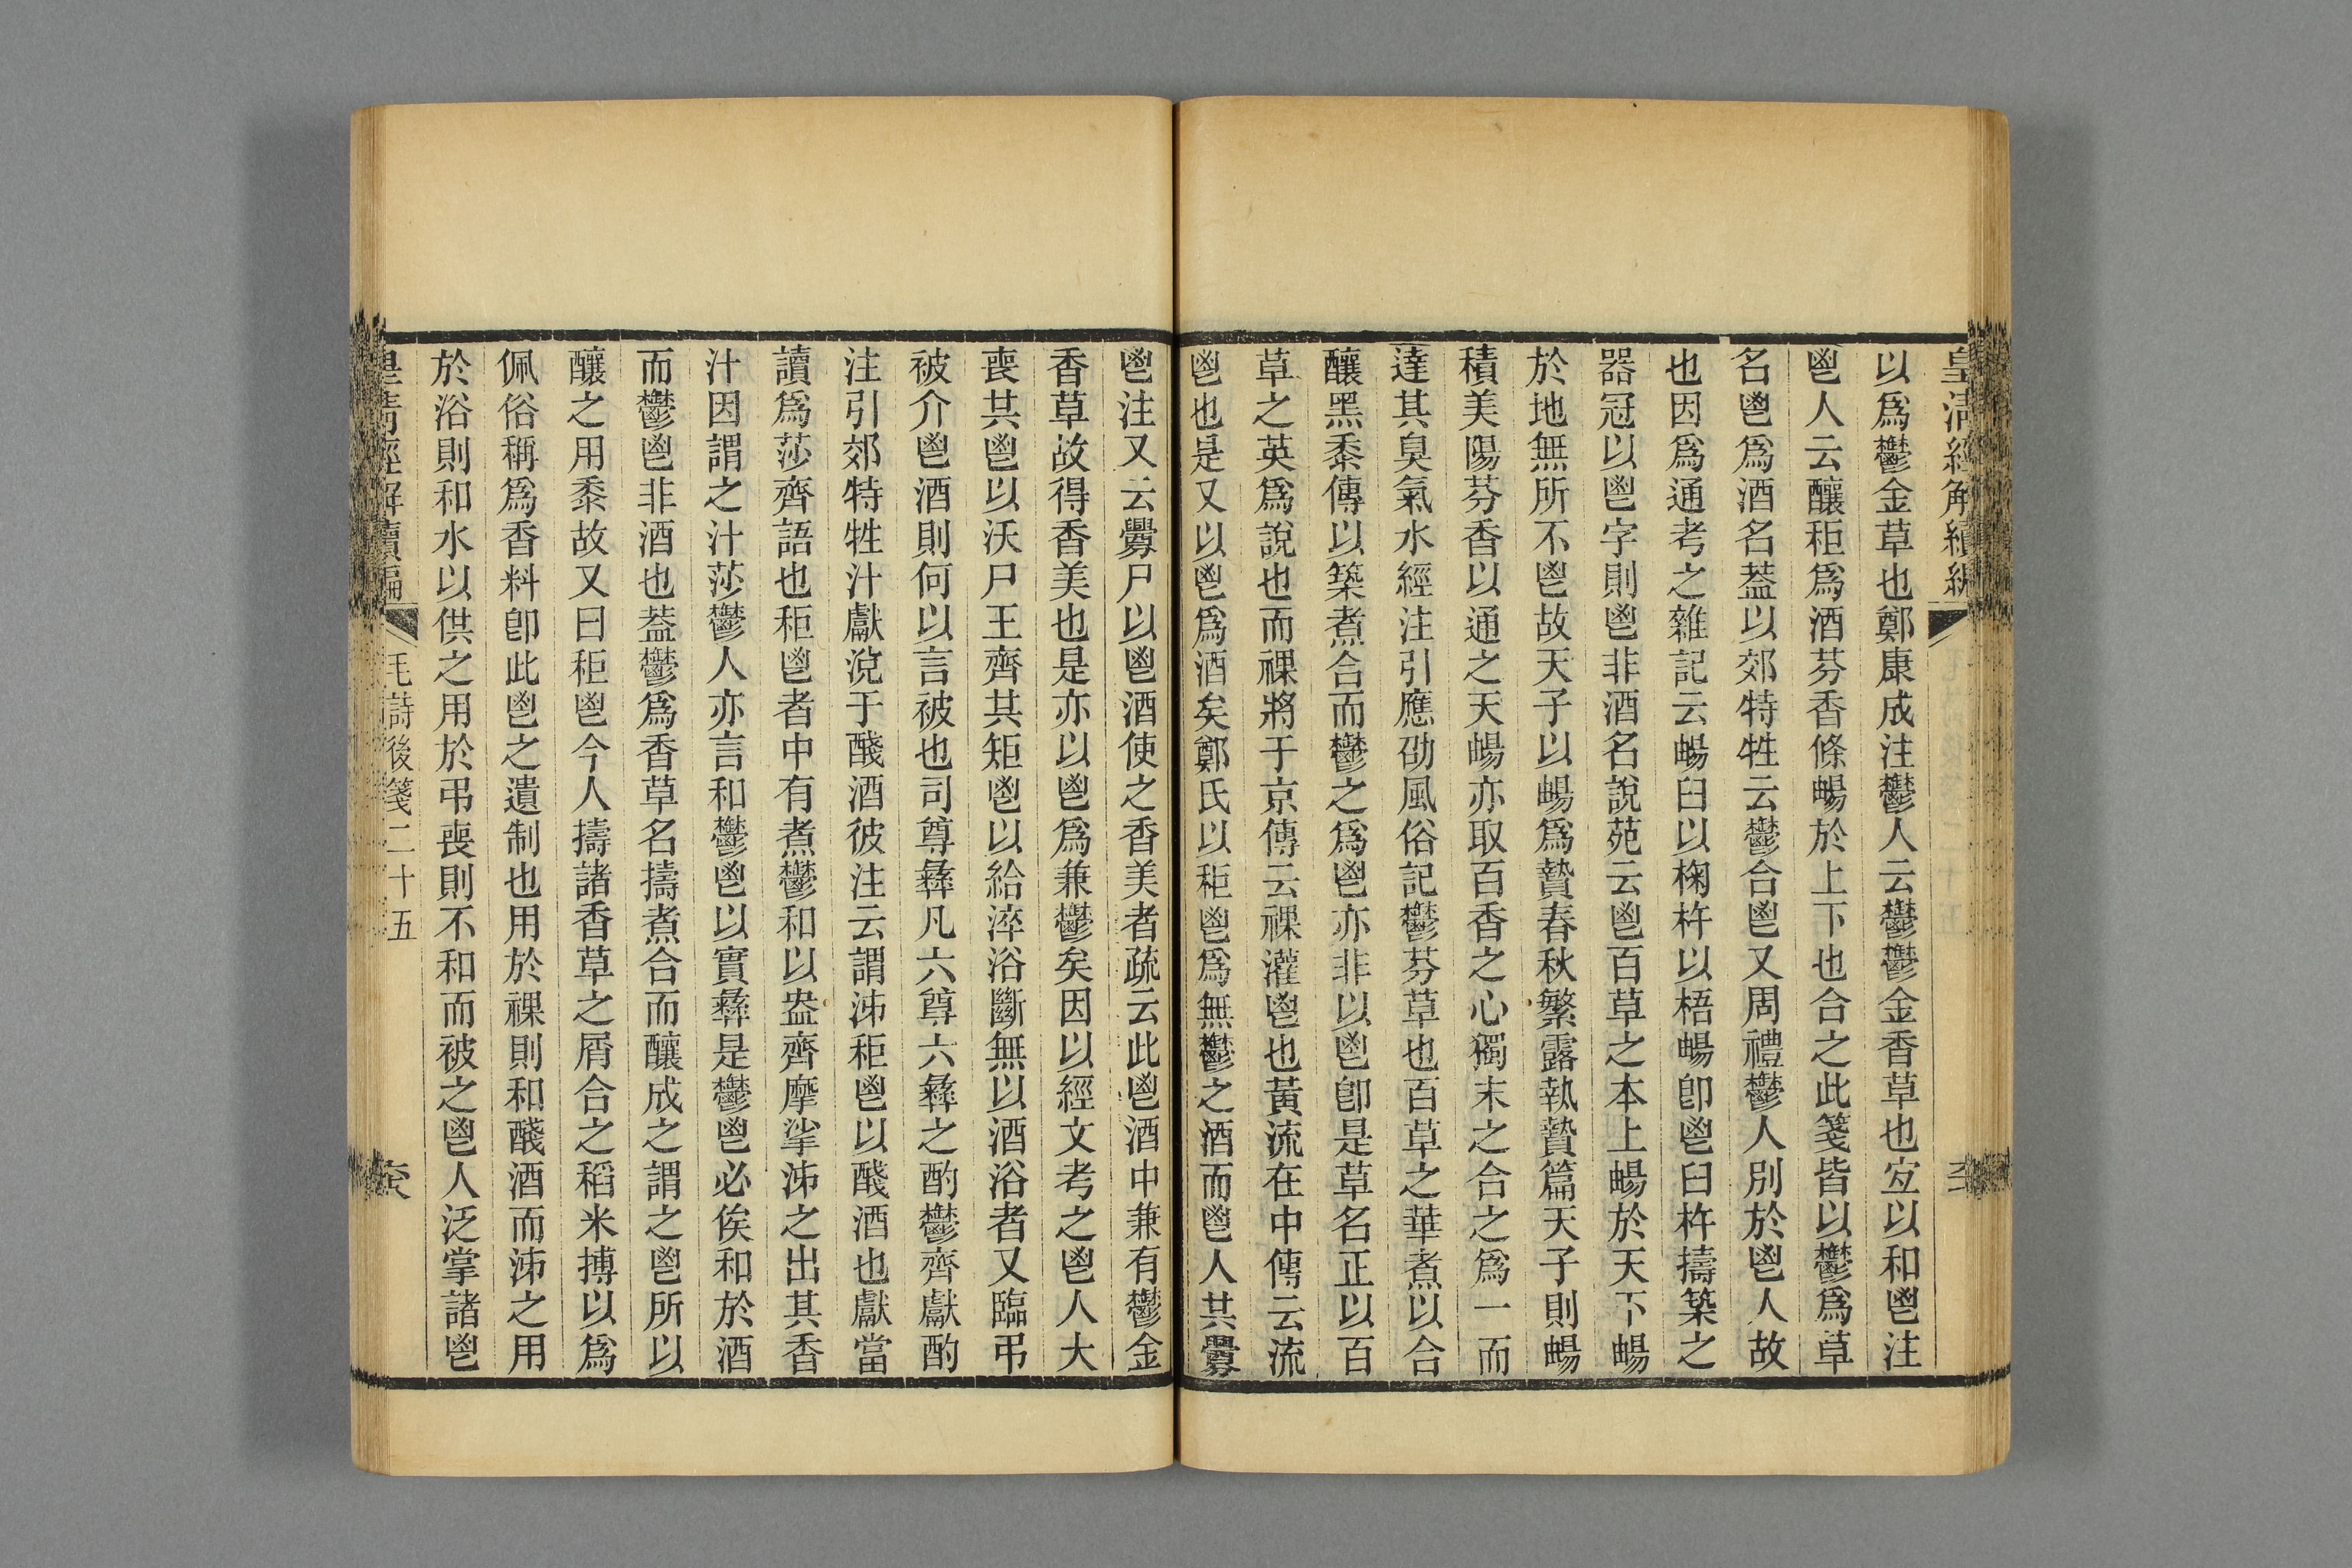 皇清經解續編
以爲鬱金草也鄭康成注鬱人云鬱鬱金香草也宐以和鬯注
鬯人云釀秬爲酒芬香條暢於上下也合之此箋皆以鬱爲草
名鬯爲酒名葢以郊特牲云鬱合鬯又周禮鬱人別於鬯人故
也因爲通考之雜記云暢臼以椈杵以梧暢卽鬯臼杵擣築之
器冠以鬯字則鬯非酒名說苑云鬯百草之本上暢於天下暢
於地無所不鬯故天子以暢爲贄春秋繁露執贄篇天子則暢
積美陽芬香以通之天暢亦取百香之心獨末之合之爲一而
達其臭氣水經注引應劭風俗記鬱芬草也百草之華煮以合
釀黑黍傳以築煮合而鬱之爲鬯亦非以鬯卽是草名正以百
草之英爲說也而祼將于京傳云祼灌鬯也黃流在中傳云流
鬯也是又以鬯爲酒矣鄭氏以秬鬯爲無鬱之酒而鬯人共釁
鬯注又云釁尸以鬯酒使之香美者疏云此鬯酒中兼有鬱金
香草故得香美也是亦以鬯爲兼鬱矣因以經文考之鬯人大
喪共鬯以沃尸王齊共矩鬯以給淬浴斷無以酒浴者又臨弔
被介鬯酒則何以言被也司尊彝凡六尊六彝之酌鬱齊獻酌
注引郊特牲汁獻涗于醆酒彼注云謂泲秬鬯以醆酒也獻當
讀爲莎齊語也秬鬯者中有煮鬱和以盎齊摩挲泲之出其香
汁因謂之汁莎鬱人亦言和鬱鬯以實彝是鬱鬯必俟和於酒
而鬱鬯非酒也葢鬱爲香草名擣煮合而釀成之謂之鬯所以
釀之用黍故又曰秬鬯今人擣諸香草之屑合之稻米搏以爲
佩俗稱爲香料卽此鬯之遺制也用於祼則和醆酒而泲之用
於浴則和水以供之用於弔喪則不和而被之鬯人泛掌諸鬯
皇清經解續編 毛詩後箋二十五